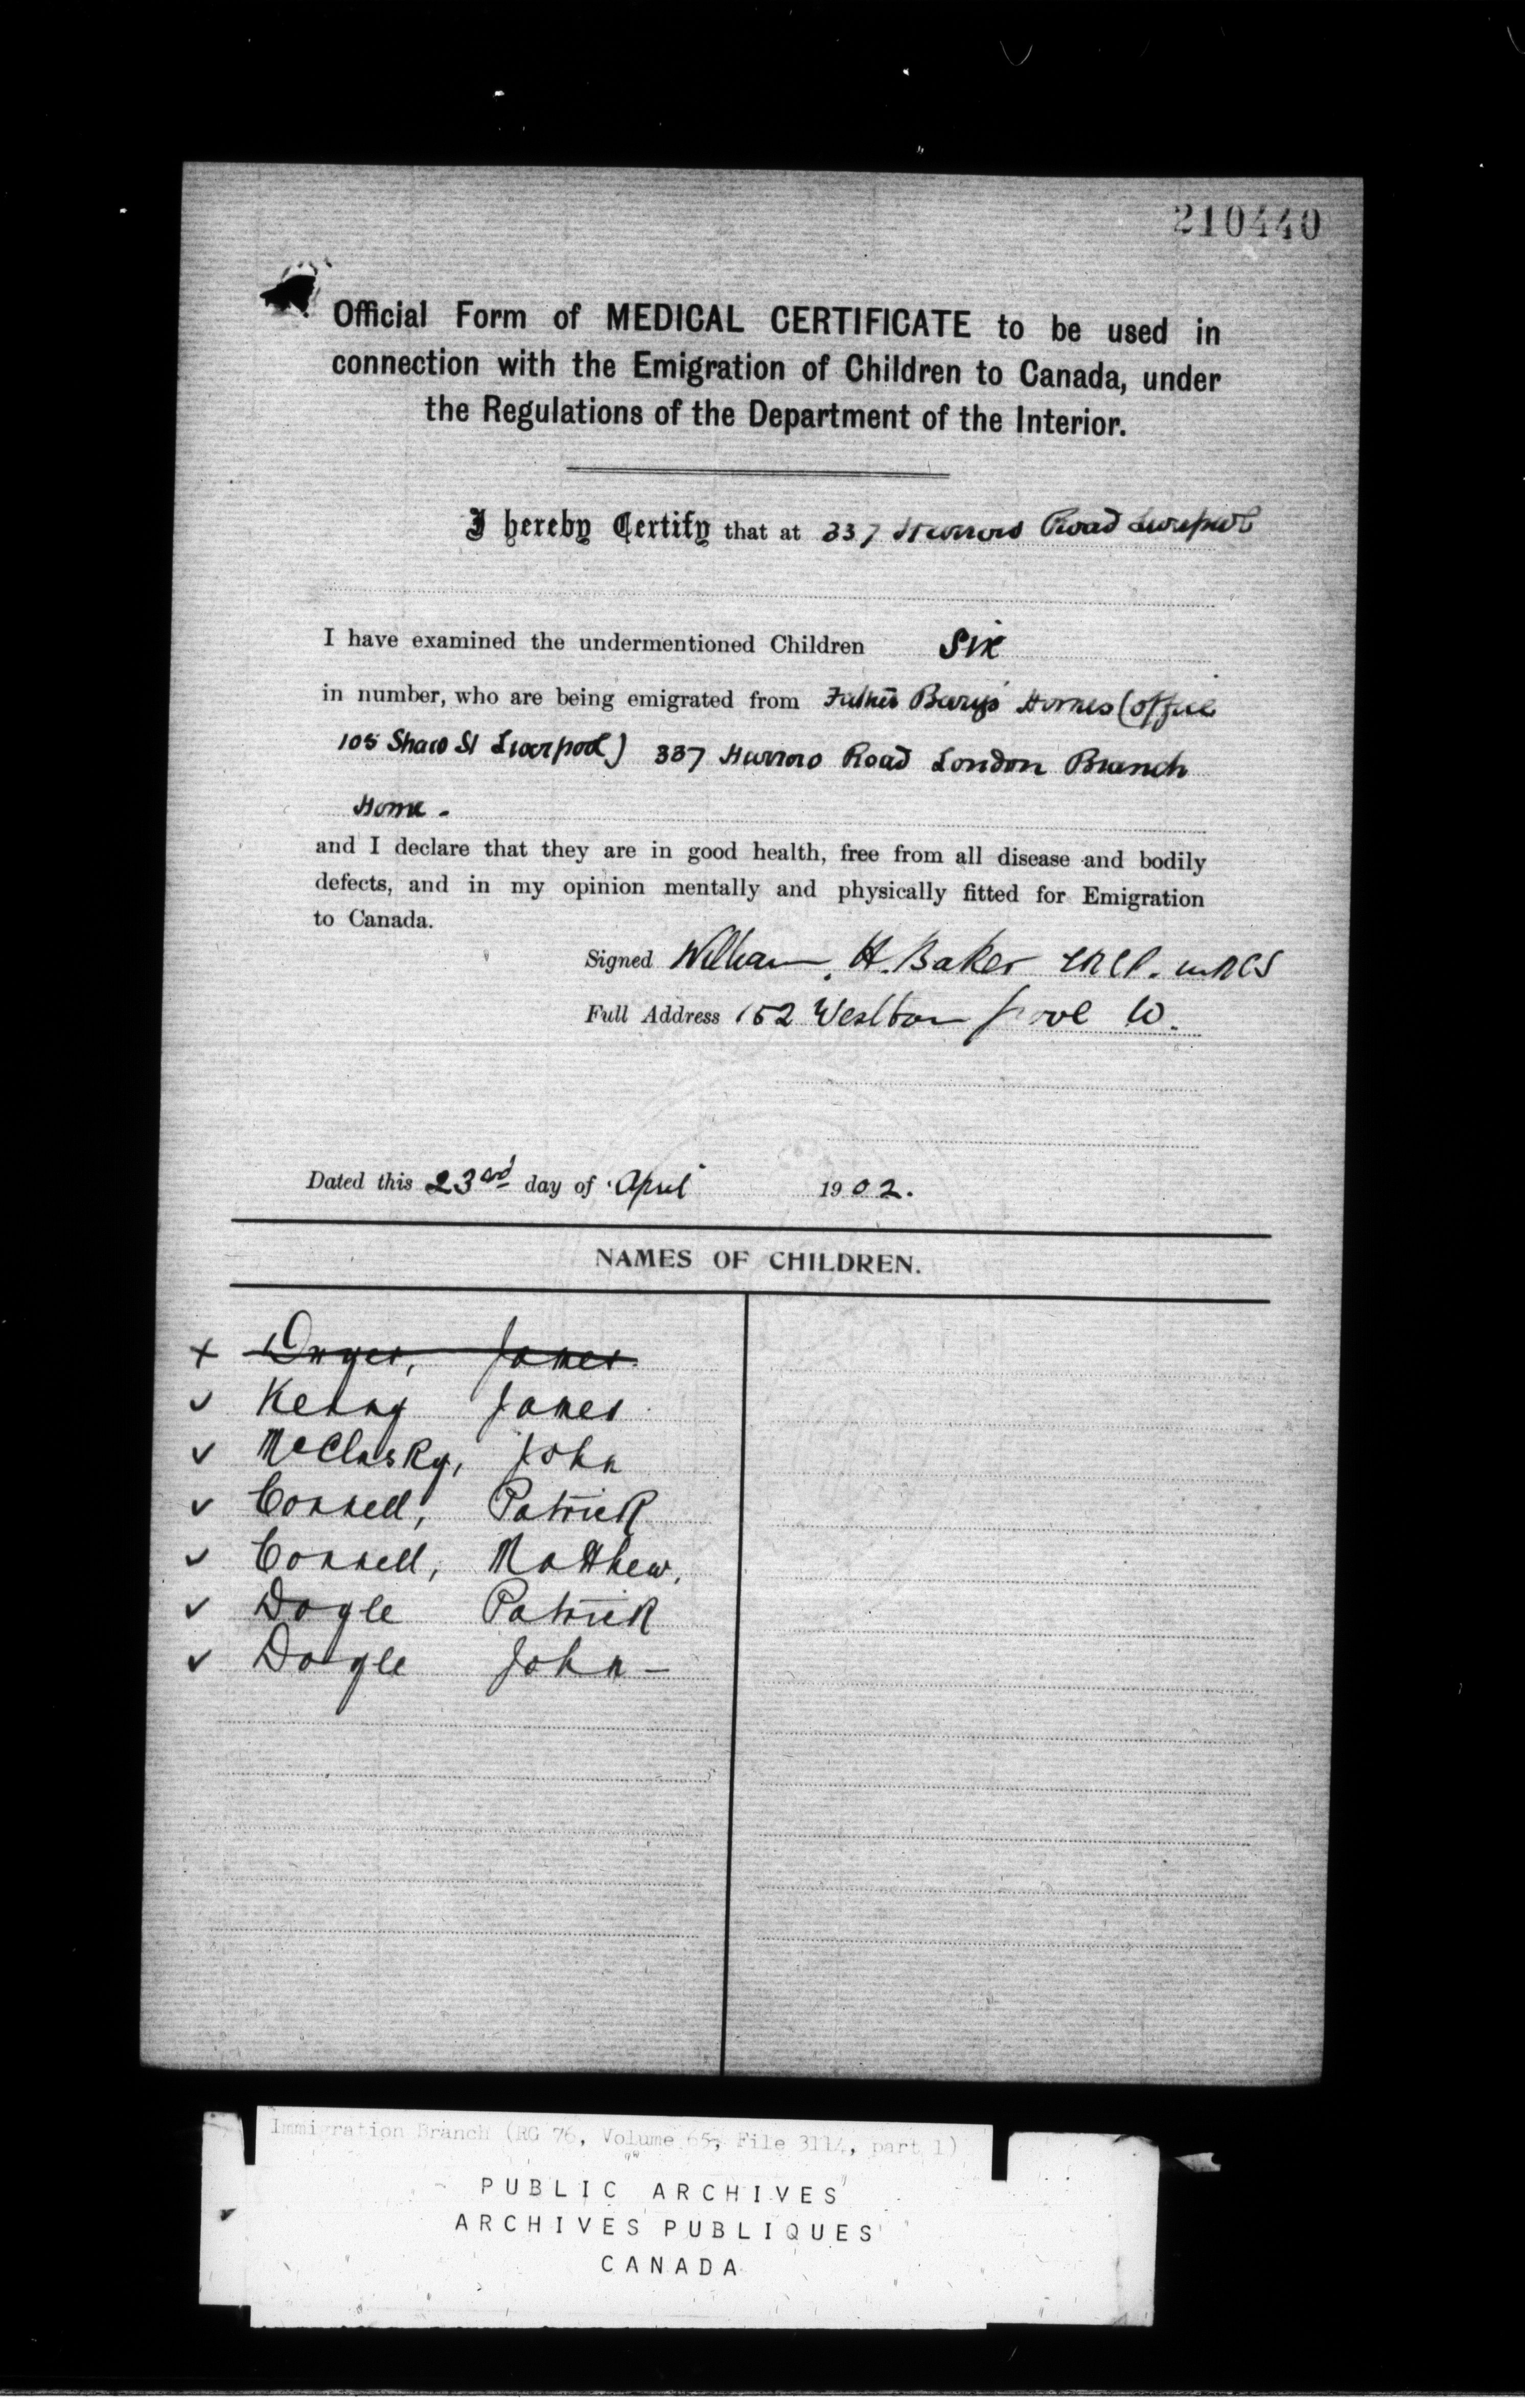 210440
Official Form of MEDICAL CERTIFICATE to be used in
connection with the Emigration of Children to Canada, under
the Regulations of the Department of the Interior.
I hereby Certify that at 337 Harrow Road Liverpool
I have examined the undermentioned Children Six
in number, who are being emigrated from Father Berry's Homes (Office
105 Shaw St Liverpool) 337 Harrow Road London Branch
Home -
and I declare that they are in good health, free from all disease and bodily
defects, and in my opinion mentally and physically fitted for Emigration
to Canada.
Signed William H. Baker LRCP. MRCS
Full Address 152 Westbourne Grove W.
Dated this 23rd day of April 1902.
NAMES OF CHILDREN.
x Dwyer, James
✓ Kenny James
✓ McClusky, John
✓ Connell, Patrick
✓ Connell, Matthew,
✓ Doyle Patrick
✓ Doyle John -
Immigration Branch (RG 76, Volume 65, File 3114, part 1)
PUBLIC ARCHIVES
ARCHIVES PUBLIQUES
CANADA